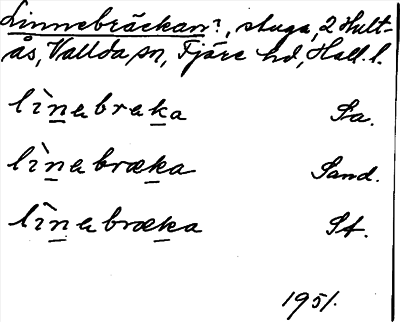 Linnebräckan?, stuga, 2 Hult-
ås, Vallda sn, Fjäre hd, Hall. l.
lìnebreka Sa.
lìnebræka Sand.
lìnebræka St.
1951.